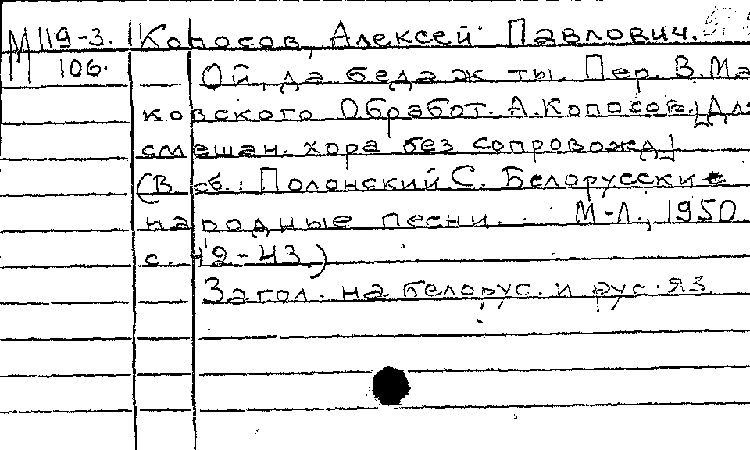 М 119-3. Копосов, Алексей Павлович.
106. Ой, да беда ж ты. Пер. В. Ма-
ковского Обработ. А. Копосов. [Для
смешан. хора без сопровожд.]
(В сб.: Полонский С. Белорусские
народные песни. М-Л., 1950
с. 42-43.)
Загол. на белорус. и рус. яз.